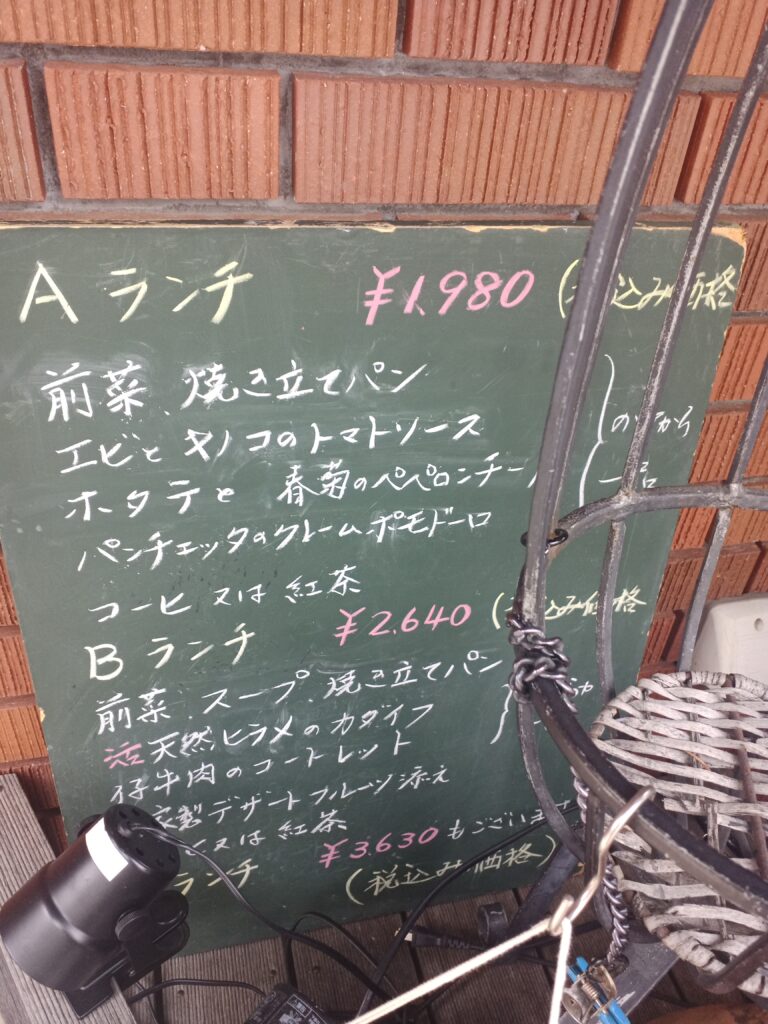 Aランチ ¥1,980 (込み価格
前菜、焼き立てパン
エビとキノコのトマトソース
ホタテと 春菊のペペロンチー
のから
パンチェッタのクレームポモドーロ
コーヒ 又は 紅茶
Bランチ ¥2,640 (込み価格
前菜、スープ、焼き立てパン
活天然ヒラメのカダイフ
仔牛肉のコートレット
製デザートフルーツ添え
ヒ又は 紅茶
ランチ ¥3,630 もございます
(税込み価格)